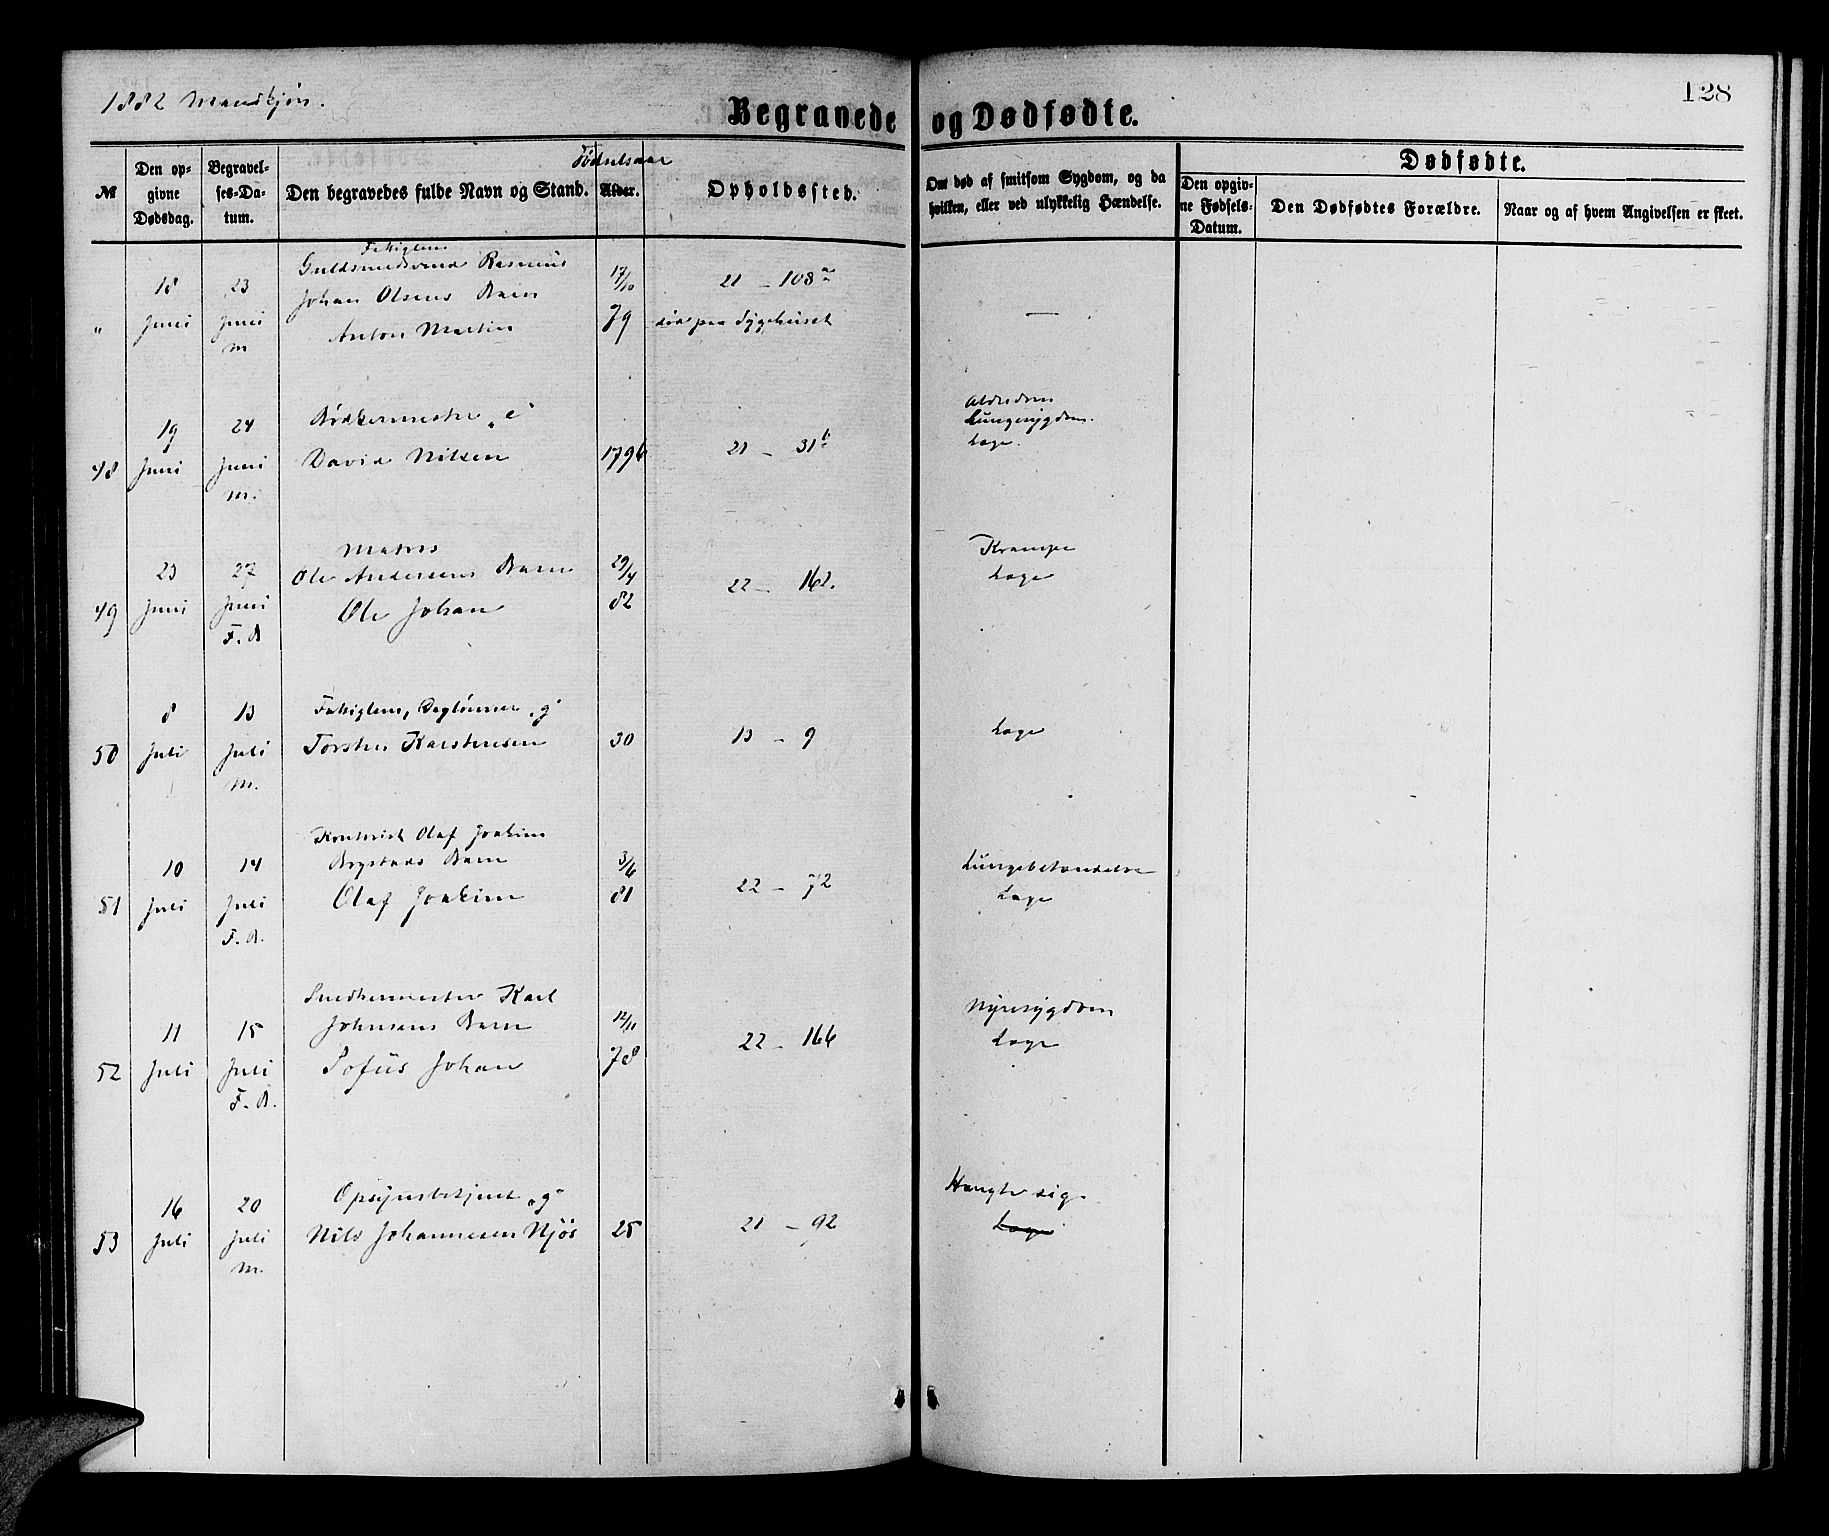 1882 Mandkjøn.
128
Begravede og Dødfødte.
№
Den opgivne Dødsdag.
Begravelses-Datum.
Den begravedes fulde Navn og Stand.
Fødselsaar
Alder.
Opholdssted.
Om død af smitsom Sygdom, og da hvilken, eller ved ulykkelig Hændelse.
Dødfødte.
Den opgivne Fødsels-Datum.
Den Dødfødtes Forældre.
Naar og af hvem Angivelsen er skeet.
Fatiglem
Guldsmedsvend Rasmus
18 23 Johan Olsens Barn 17/10 21 - 108 a
" Juni Juni Anton Martin 79 død paa Sygehuset —
m
Bødkermester "e" Alderdom
19 24 Lungesygdom.
48 Juni Juni David Nilsen 1796 21 - 31 b Læge.
m.
Matros Krampe
23 27 Ole Andersens Barn 29/4 22 - 162. Læge
49 Juni Juni Ole Johan 82
F. B
8 13 Fatiglem, Daglønner "g"
50 Juli Juli Torsten Karstensen 30 13 - 9 Læge
m.
Olaf Joakim
10 14 Barn 3/6 Lungebetændelse
51 Juli Juli Olaf Joakim 81 22 - 72 Læge
F. B.
Snedkermester Karl Nyresygdom
11 15 Johnsens Barn 12/11 22 - 166 Læge
52 Juli Juli Tofus Johan 78
F. B.
16 20 Opsynsbetjent "g" Hængte sig.
53 Juli Juli Nils Johannesen Njøs 25 21 - 92 Læge
m.